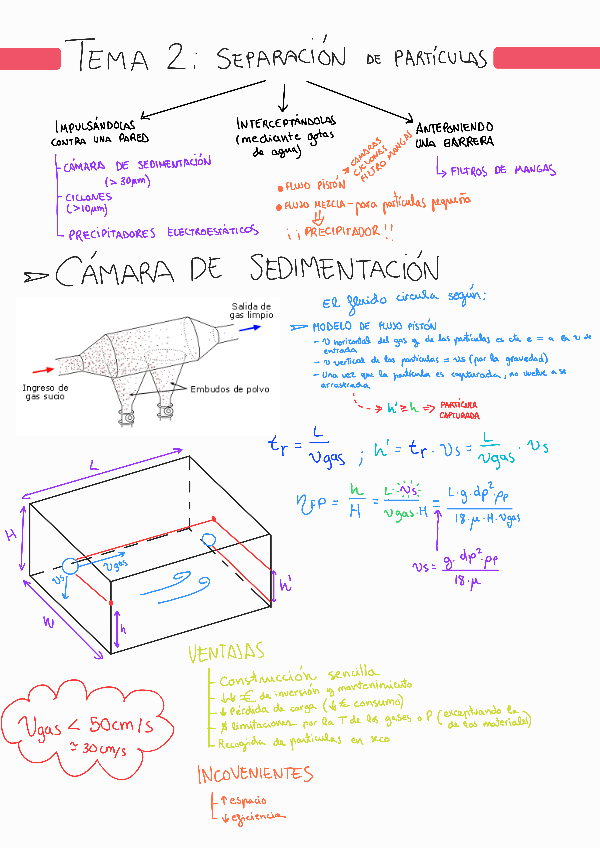 TEMA 2: SEPARACIÓN DE PARTÍCULAS
IMPULSÁNDOLAS
CONTRA UNA PARED
- CÁMARA DE SEDIMENTACIÓN
(> 30μm)
- CICLONES
(>10μm)
- PRECIPITADORES ELECTROESTÁTICOS
INTERCEPTÁNDOLAS
(mediante gotas
de agua)
ANTEPONIENDO
UNA BARRERA
↳ FILTROS DE MANGAS
• FLUJO PISTÓN
CÁMARAS
CICLONES
FILTRO MANGAS
• FLUJO MEZCLA - para partículas pequeña
⇓
¡¡PRECIPITADOR!!
⇒ CÁMARA DE SEDIMENTACIÓN
Salida de
gas limpio
Ingreso de
gas sucio
Embudos de polvo
El fluido circula según:
MODELO DE FLUJO PISTÓN
- v horizontal del gas y de las partículas es cte e = a la v de
entrada
- v vertical de las partículas = vs (por la gravedad)
- Una vez que la partícula es capturada, no vuelve a se
arrastrada
→ h' ≥ h ⇒ PARTÍCULA
CAPTURADA
tr = L / vgas ; h' = tr · vs = L / vgas · vs
ηFP = h / H = L · vs / vgas · H = L · g · dp² · ρp / 18 · μ · H · vgas
vs = g · dp² · ρp / 18 · μ
L
H
W
vs
vgas
h
h'
Vgas < 50 cm/s
≈ 30 cm/s
VENTAJAS
- Construcción sencilla
- ↓↓ € de inversión y mantenimiento
- ↓ Pérdida de carga (↓ € consumo)
- ∄ limitaciones por la T de los gases o P (exceptuando la
de los materiales)
- Recogida de partículas en seco
INCOVENIENTES
- ↑ espacio
- ↓ eficiencia